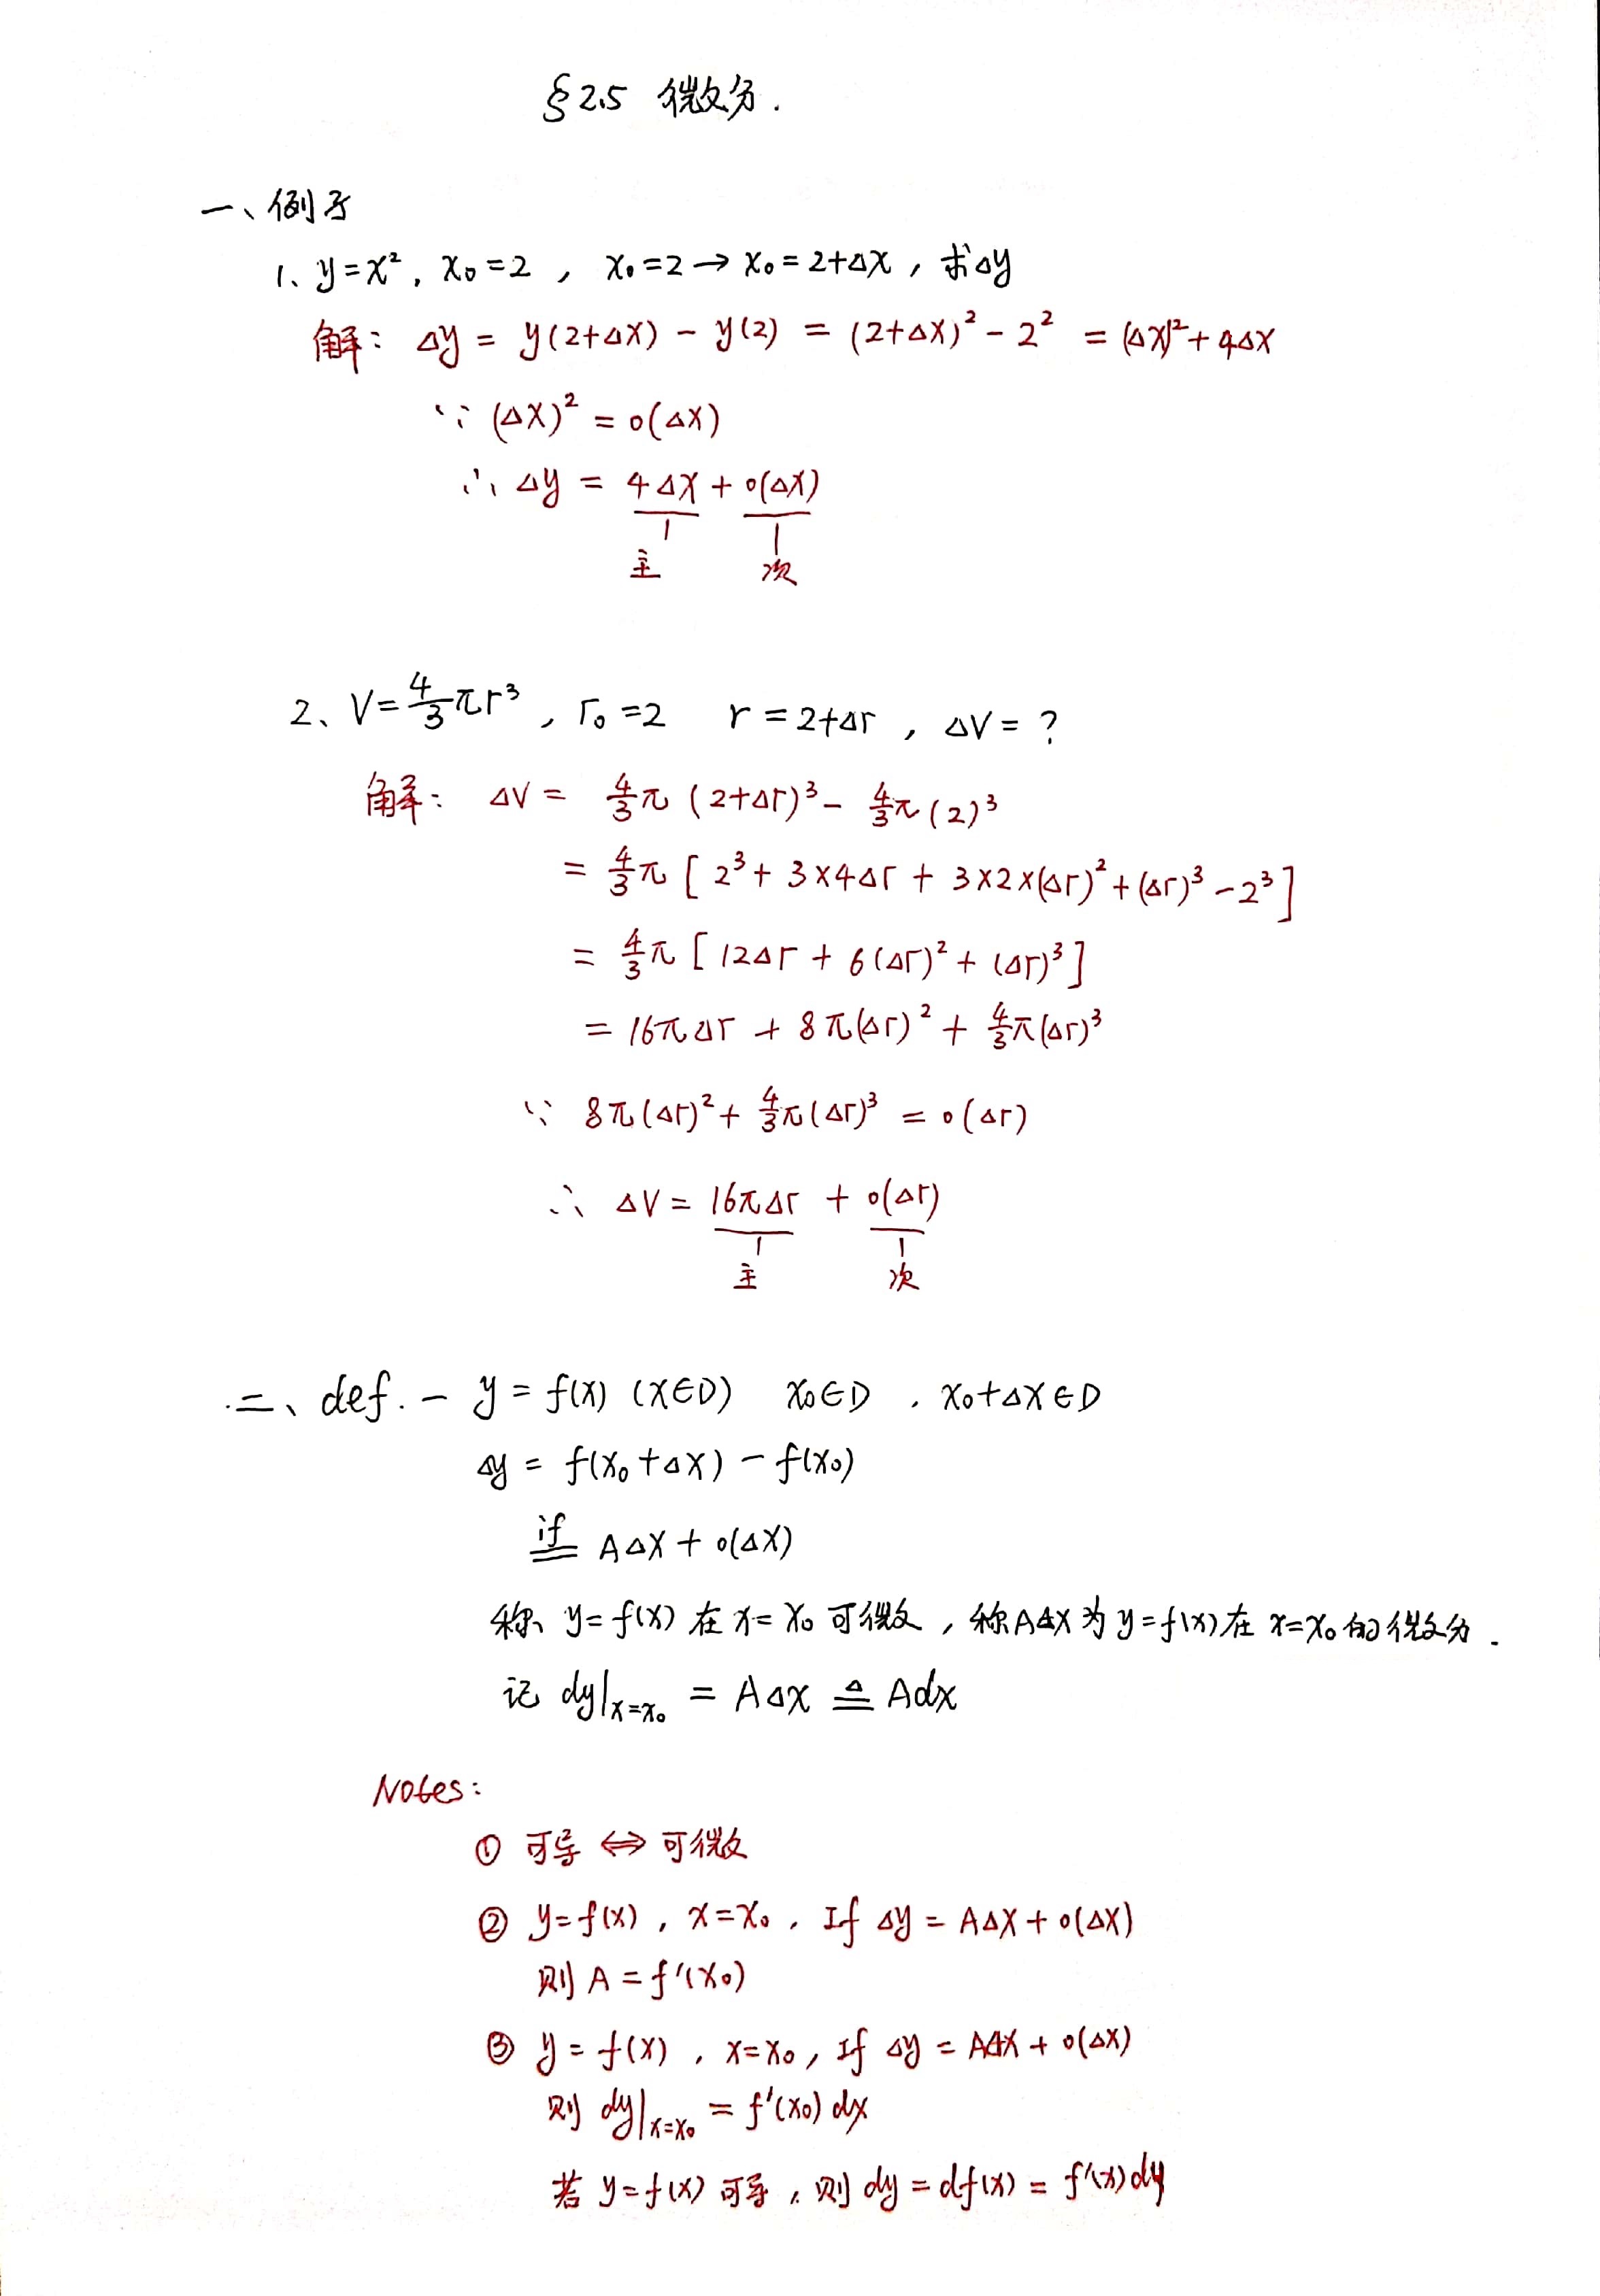 §2.5 微分.
一、例子
1、y=x², x₀=2 , x₀=2→x₀=2+Δx , 求Δy
解: Δy = y(2+Δx) - y(2) = (2+Δx)² - 2² = (Δx)²+4Δx
∵ (Δx)² = o(Δx)
∴ Δy = 4Δx + o(Δx)
主 次
2、V=4/3πr³ , r₀=2 r=2+Δr , ΔV= ?
解: ΔV = 4/3π (2+Δr)³ - 4/3π(2)³
= 4/3π [ 2³ + 3×4Δr + 3×2×(Δr)² + (Δr)³ - 2³ ]
= 4/3π [ 12Δr + 6(Δr)² + (Δr)³ ]
= 16πΔr + 8π(Δr)² + 4/3π(Δr)³
∵ 8π(Δr)² + 4/3π(Δr)³ = o(Δr)
∴ ΔV = 16πΔr + o(Δr)
主 次
二、def. - y = f(x) (x∈D) x₀∈D , x₀+Δx∈D
Δy = f(x₀+Δx) - f(x₀)
if= AΔx + o(Δx)
称 y=f(x) 在 x=x₀ 可微, 称AΔx为y=f(x)在 x=x₀的微分.
记 dy|x=x₀ = AΔx ≜ Adx
Notes:
① 可导 ⇔ 可微
② y=f(x) , x=x₀ , If Δy = AΔx + o(Δx)
则 A = f'(x₀)
③ y = f(x) , x=x₀ , If Δy = AΔx + o(Δx)
则 dy|x=x₀ = f'(x₀) dx
若 y=f(x) 可导, 则 dy = df(x) = f'(x)dy